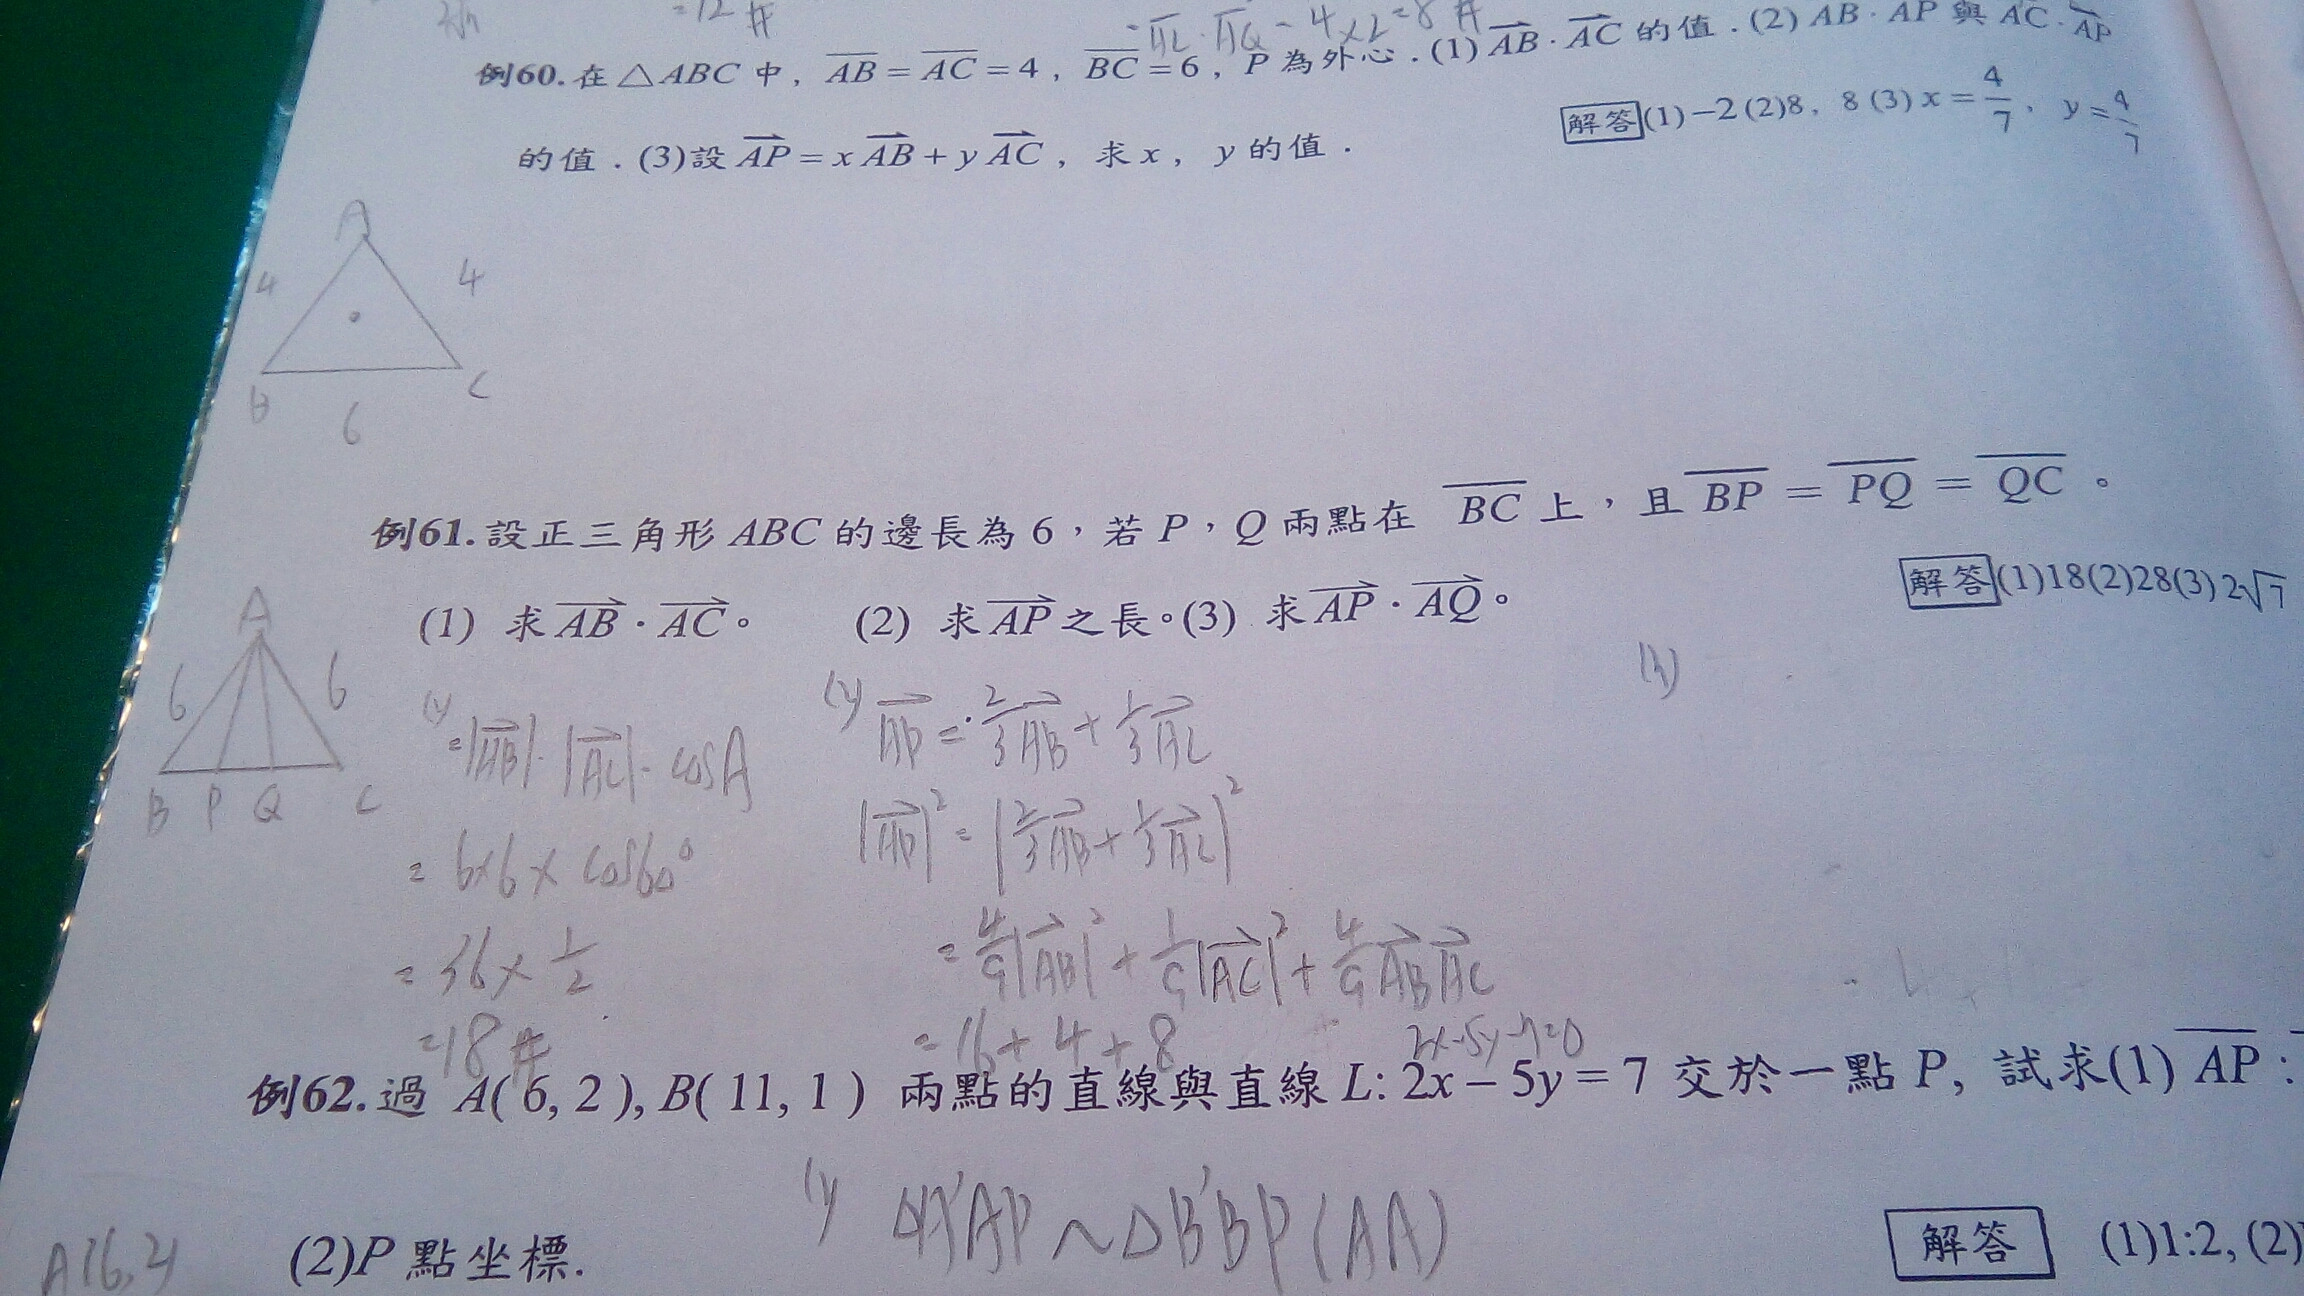 =12 #
= AC · AQ = 4×2 = 8 #
例60. 在 △ABC 中, AB = AC = 4, BC = 6, P 為外心. (1) AB · AC 的值. (2) AB · AP 與 AC · AP
的值. (3)設 AP = x AB + y AC, 求 x, y 的值.
解答 (1) −2 (2)8, 8 (3) x = 4/7, y = 4/7
A
4 4
B C
6
例61. 設正三角形 ABC 的邊長為 6,若 P,Q 兩點在 BC 上,且 BP = PQ = QC。
解答 (1)18(2)28(3) 2√7
(1) 求 AB · AC。 (2) 求 AP 之長。(3) 求 AP · AQ。
A
6 6
B P Q C
(1)
= |AB| · |AC| · cosA
= 6×6 × cos60°
= 36 × 1/2
= 18 #
(2) AP = 2/3 AB + 1/3 AC
|AP|² = |2/3 AB + 1/3 AC|²
= 4/9 |AB|² + 1/9 |AC|² + 4/9 AB AC
= 16 + 4 + 8
2x−5y−7=0
例62. 過 A( 6, 2 ), B( 11, 1 ) 兩點的直線與直線 L: 2x − 5y = 7 交於一點 P, 試求(1) AP :
(1) △A'AP ~ △B'BP (AA)
A(6,2)
(2)P 點坐標.
解答 (1)1:2, (2)